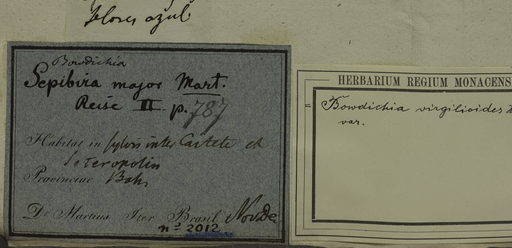 flores azul
Bowdichia
Sepibira major Mart.
Reise II. p. 787
Habitat in sylvis inter Caitete et
Soteropolin
Provinciae Bah.
De Martius Iter Brasil. Novbr
nº 2012
HERBARIUM REGIUM MONACENS
Bowdichia virgilioides
var.